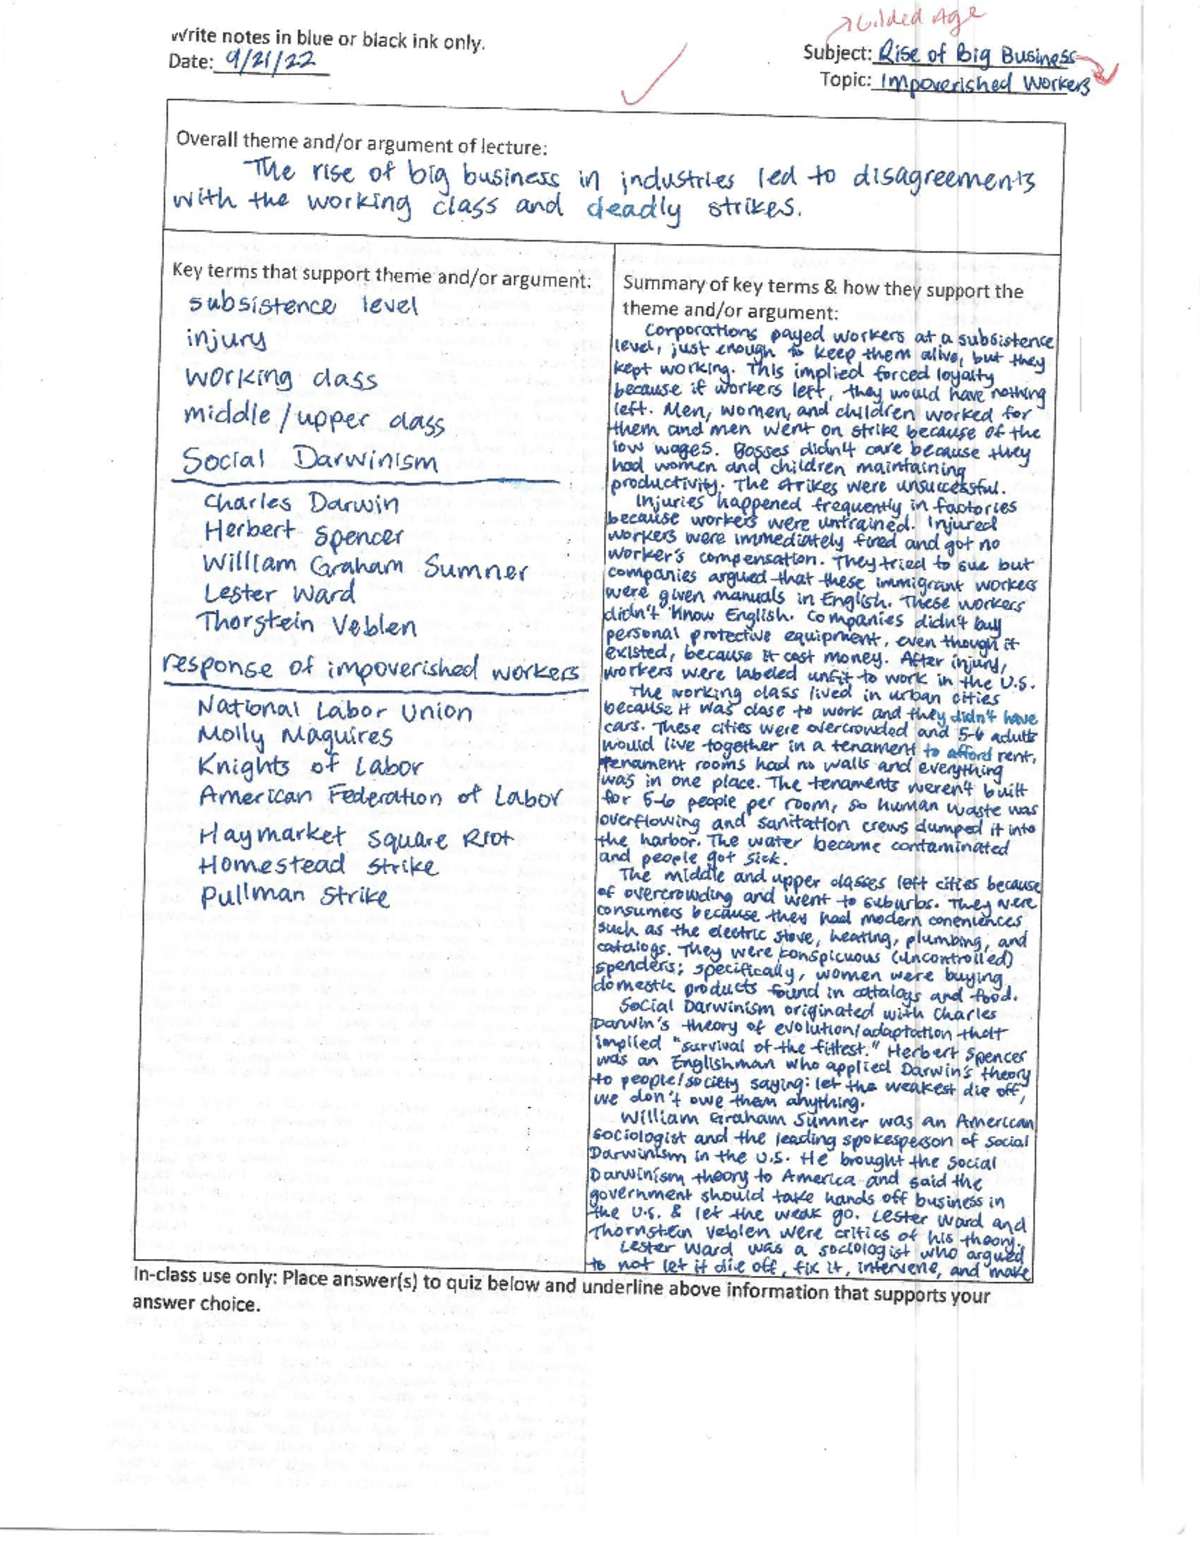 Gilded Age
Write notes in blue or black ink only.
Date: 9/21/22
Subject: Rise of Big Business
Topic: Impoverished Workers
Overall theme and/or argument of lecture:
The rise of big business in industries led to disagreements
with the working class and deadly strikes.
Key terms that support theme and/or argument:
subsistence level
injury
working class
middle/upper class
Social Darwinism
Charles Darwin
Herbert Spencer
William Graham Sumner
Lester Ward
Thorstein Veblen
response of impoverished workers
National Labor Union
Molly Maguires
Knights of Labor
American Federation of Labor
Haymarket Square Riot
Homestead Strike
Pullman Strike
Summary of key terms & how they support the
theme and/or argument:
Corporations payed workers at a subsistence
level, just enough to keep them alive, but they
kept working. This implied forced loyalty
because if workers left, they would have nothing
left. Men, women, and children worked for
them and men went on strike because of the
low wages. Bosses didn't care because they
had women and children maintaining
productivity. The strikes were unsuccessful.
Injuries happened frequently in factories
because workers were untrained. Injured
workers were immediately fired and got no
worker's compensation. They tried to sue but
companies argued that these immigrant workers
were given manuals in English. These workers
didn't know English. Companies didn't buy
personal protective equipment, even though it
existed, because it cost money. After injury,
workers were labeled unfit to work in the U.S.
The working class lived in urban cities
because it was close to work and they didn't have
cars. These cities were overcrowded and 5-6 adults
would live together in a tenament to afford rent.
Tenament rooms had no walls and everything
was in one place. The tenaments weren't built
for 5-6 people per room, so human waste was
overflowing and sanitation crews dumped it into
the harbor. The water became contaminated
and people got sick.
The middle and upper classes left cities because
of overcrowding and went to suburbs. They were
consumers because they had modern coneniences
such as the electric stove, heating, plumbing, and
catalogs. They were konspicuous (uncontrolled)
spenders; specifically, women were buying
domestic products found in catalogs and food.
Social Darwinism originated with Charles
Darwin's theory of evolution/adaptation that
implied "survival of the fittest." Herbert Spencer
was an Englishman who applied Darwin's theory
to people/society saying: let the weakest die off,
we don't owe them anything.
William Graham Sumner was an American
sociologist and the leading spokesperson of Social
Darwinism in the U.S. He brought the Social
Darwinism theory to America and said the
government should take hands off business in
the U.S. & let the weak go. Lester Ward and
Thornstein Veblen were critics of his theory.
Lester Ward was a sociologist who argued
to not let it die off, fix it, intervene, and make
In-class use only: Place answer(s) to quiz below and underline above information that supports your
answer choice.